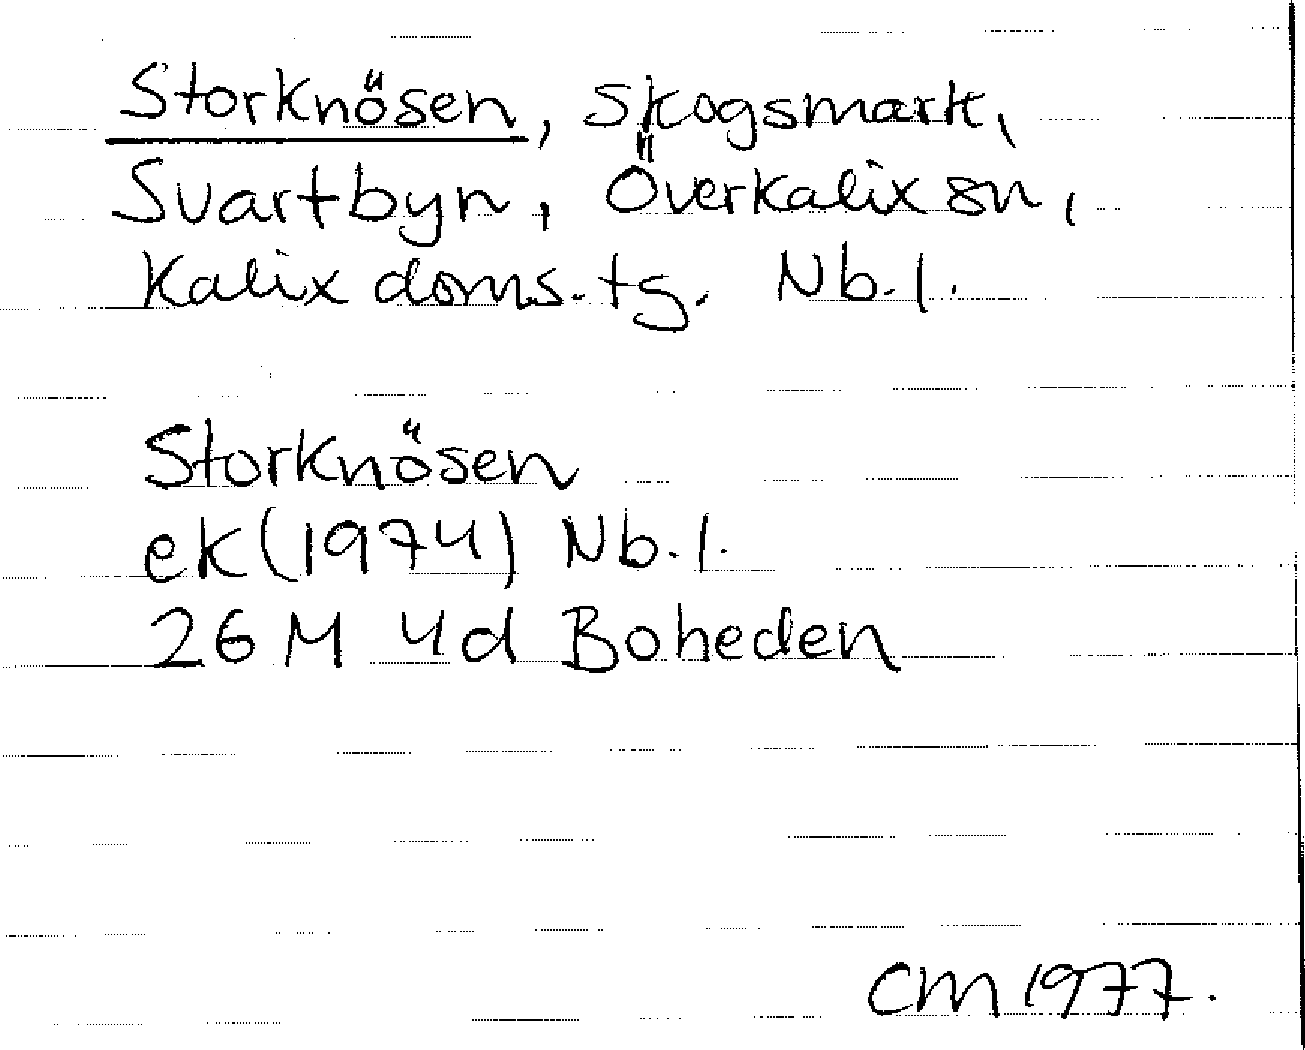 Storknösen, skogsmark,
Svartbyn, Överkalix sn,
Kalix doms.tg. Nb.l.
Storknösen
ek (1974) Nb.l.
26 M 4d Boheden
CM 1977.